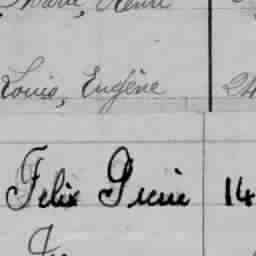 Marie, Henri
Louis, Eugène 24
Felix Pierre 14